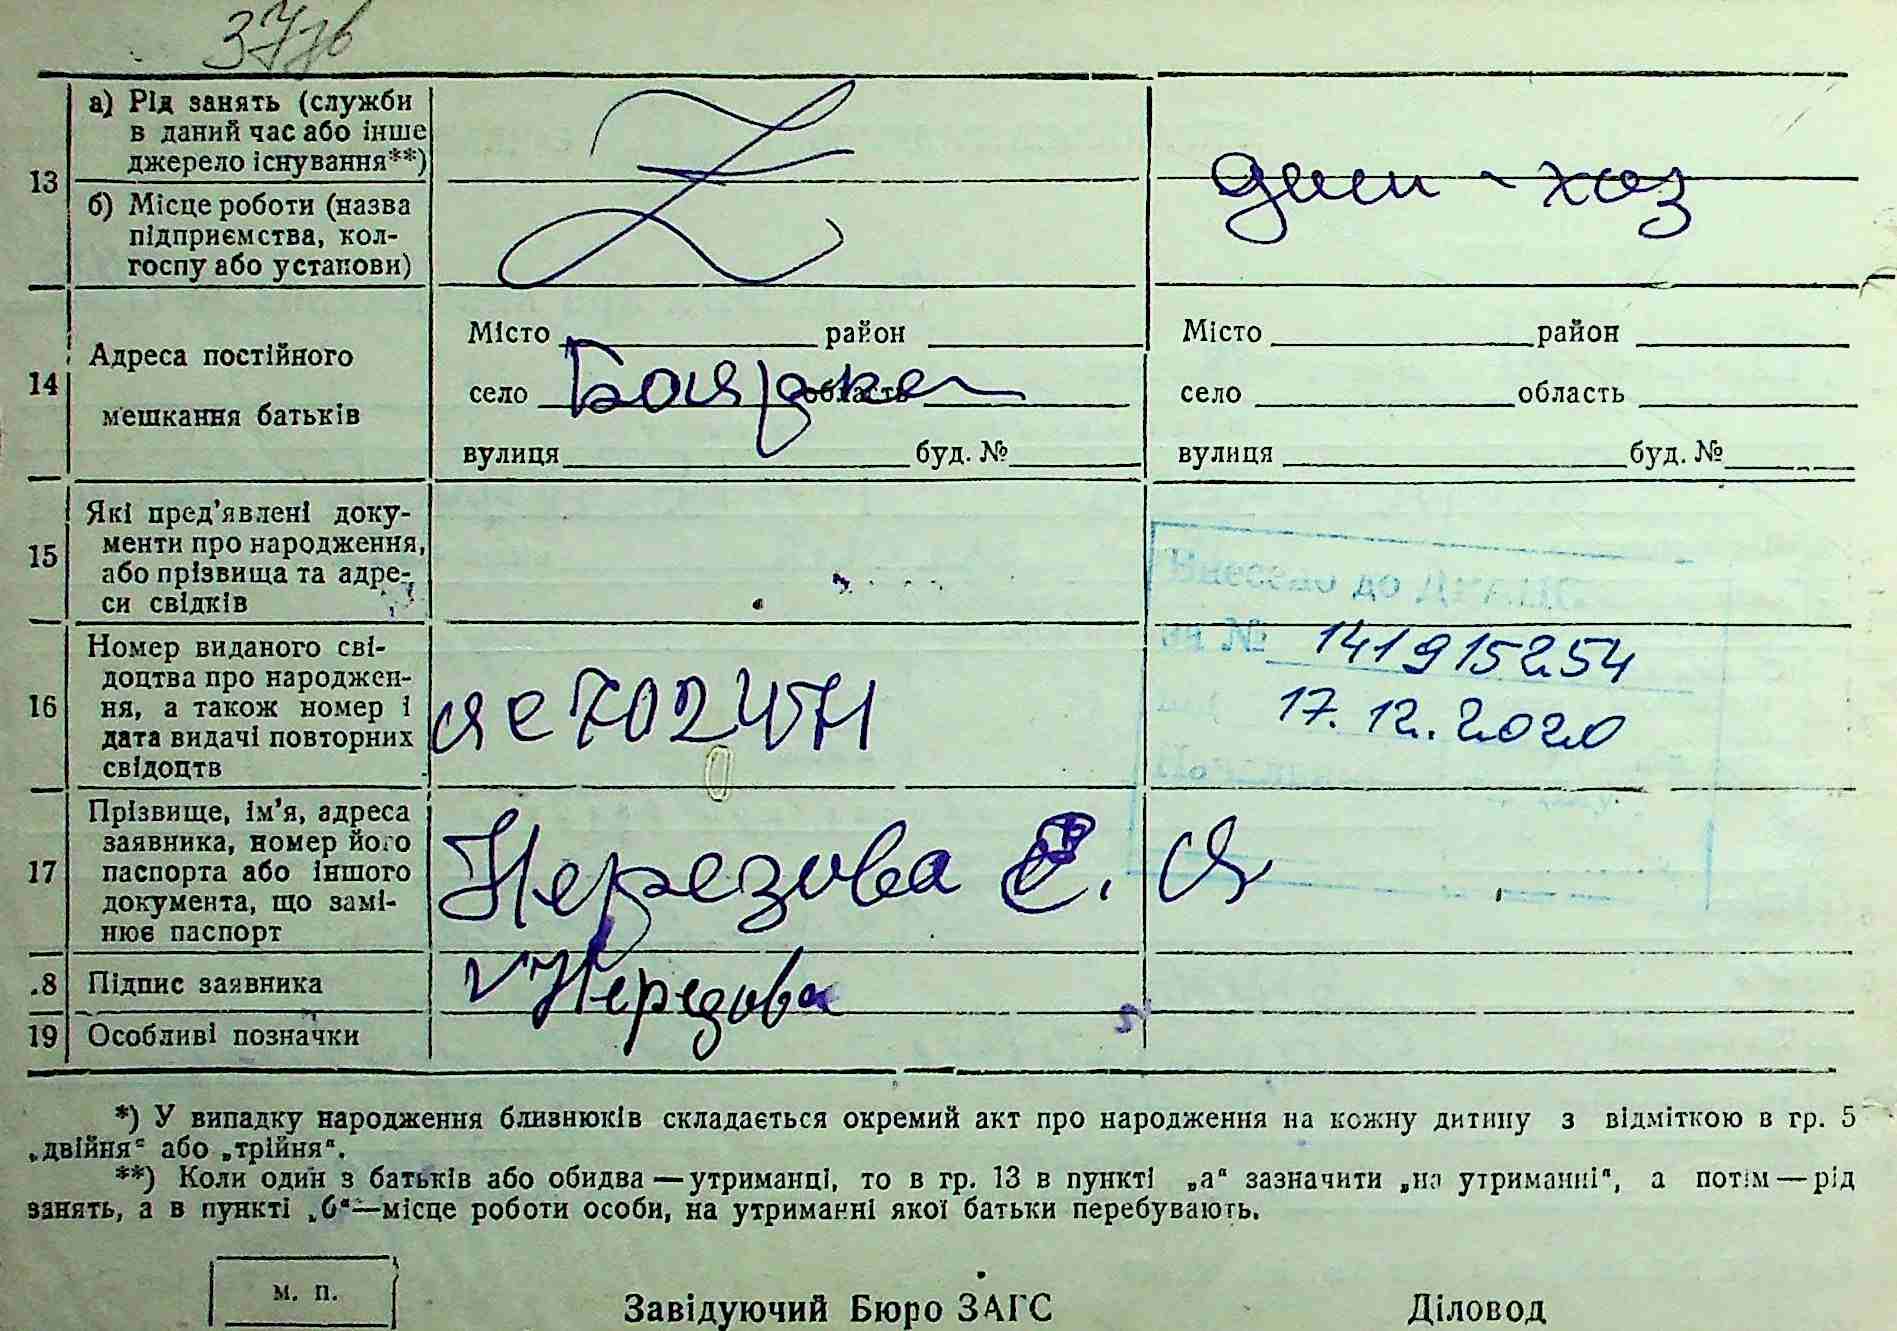 37
13
а) Рід занять (служби
в даний час або інше
джерело існування**)
б) Місце роботи (назва
підприємства, кол-
госпу або установи)
дом - хоз
14
Адреса постійного
мешкання батьків
Місто район
село Боярка область
вулиця буд. №
Місто район
село область
вулиця буд. №
15
Які пред'явлені доку-
менти про народження,
або прізвища та адре-
си свідків
Внесено до ДРАЦС
за № 141915254
17.12.2020
16
Номер виданого сві-
доцтва про народжен-
ня, а також номер і
дата видачі повторних
свідоцтв
17
Прізвище, ім'я, адреса
заявника, номер його
паспорта або іншого
документа, що замі-
нює паспорт
Нерезова Є. Я
.8 Підпис заявника
Нерезова
19 Особливі позначки
*) У випадку народження близнюків складається окремий акт про народження на кожну дитину з відміткою в гр. 5
„двійня“ або „трійня“.
**) Коли один з батьків або обидва — утриманці, то в гр. 13 в пункті „а“ зазначити „на утриманні“, а потім — рід
занять, а в пункті „б“ — місце роботи особи, на утриманні якої батьки перебувають.
м. п.
Завідуючий Бюро ЗАГС
Діловод